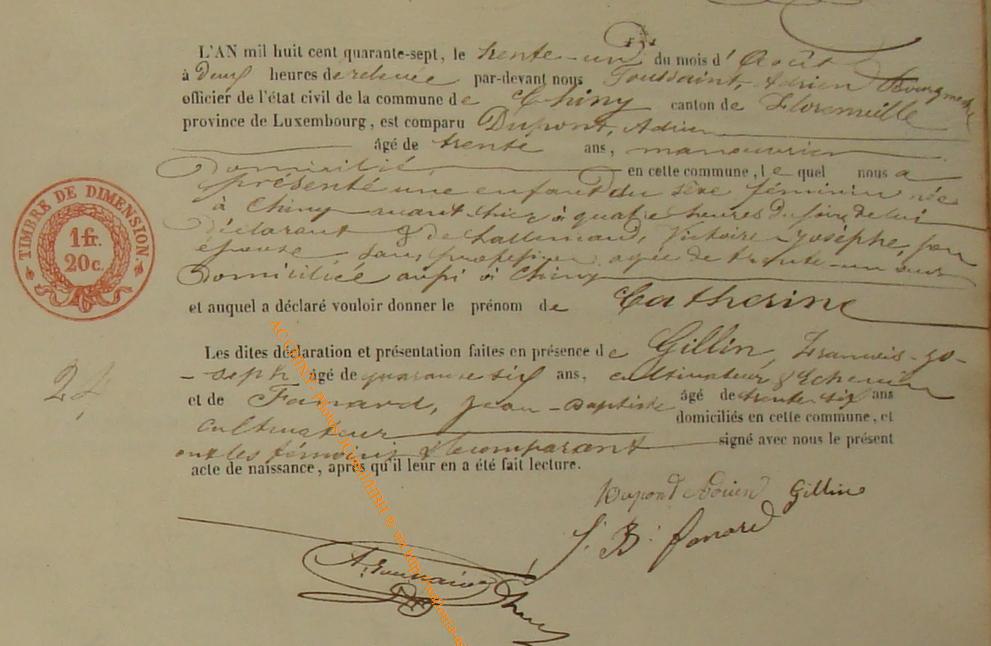 L'AN mil huit cent quarante-sept, le trente-un du mois d'Août
à Deux heures de relevée par-devant nous Toussaint, Adrien Bourgmestre
officier de l'état civil de la commune de Chiny canton de Florenville
province de Luxembourg, est comparu Dupont, Adrien
âgé de trente ans, manouvrier
Domicilié en cette commune, le quel nous a
présenté une enfant du sexe féminin née
à Chiny avant hier à quatre heures du soir, de lui
Déclarant & de Lallemand, Victoire Josèphe, son
épouse, sans profession agée de trente-un ans
Domiciliée aussi à Chiny
et auquel a déclaré vouloir donner le prénom de Catherine
Les dites déclaration et présentation faites en présence de Gillin, Francois-Jo-
-seph âgé de quarante six ans, cultivateur & Echevin
et de Fanard, Jean-Baptiste âgé de trente six ans
cultivateur domiciliés en cette commune, et
ont les témoins & le comparant signé avec nous le présent
acte de naissance, après qu'il leur en a été fait lecture.
Dupond Adrien Gillin
J. B. fanard
A. Toussaint
TIMBRE DE DIMENSION.
1 fr.
20 c.
24